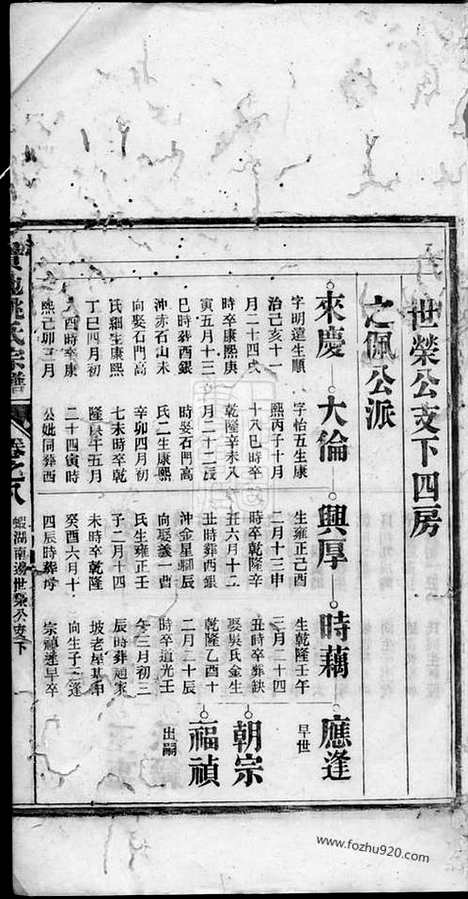 世榮公支下四房
之佩公派
來慶
字明達生順
治己亥十一
月二十四戌
時卒康熙庚
寅五月十三
巳時葬酉銀
沖赤石山未
向娶石門高
氏細生康熙
丁巳四月初
四酉時卒康
熙己卯三月
大倫
字怡五生康
熙丙子十月
十八巳時卒
乾隆辛未八
月二十二辰
時娶石門高
氏二生康熙
辛卯四月初
七未時卒乾
隆庚午五月
二十四寅時
公妣同葬酉
興厚
生雍正己酉
二月十三申
時卒乾隆辛
丑六月十二
丑時葬西銀
沖金星壠辰
向娶義一曹
氏生雍正壬
子二月十四
未時卒乾隆
癸酉六月十
四辰時葬母
時藕
生乾隆壬午
三月二十四
丑時卒葬缺
娶吳氏金生
乾隆乙酉十
二月二十辰
時卒道光壬
午三月初三
辰時葬趙家
坡老屋基申
向生子三逢
宗禎逢早卒
應逢
早世
朝宗
福禎
出嗣
氏宗譜
卷之八
蝦湖南邊世榮公支下
www.fozhu920.com